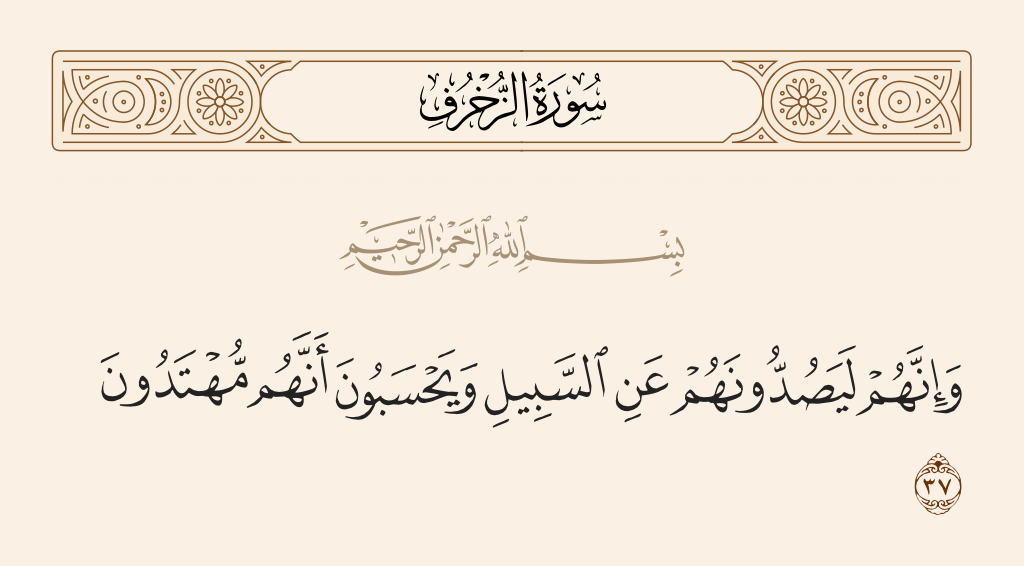 سُورَةُ الزُّخْرُفِ
بِسْمِ ٱللَّهِ ٱلرَّحْمَٰنِ ٱلرَّحِيمِ
وَإِنَّهُمْ لَيَصُدُّونَهُمْ عَنِ ٱلسَّبِيلِ وَيَحْسَبُونَ أَنَّهُم مُّهْتَدُونَ
٣٧